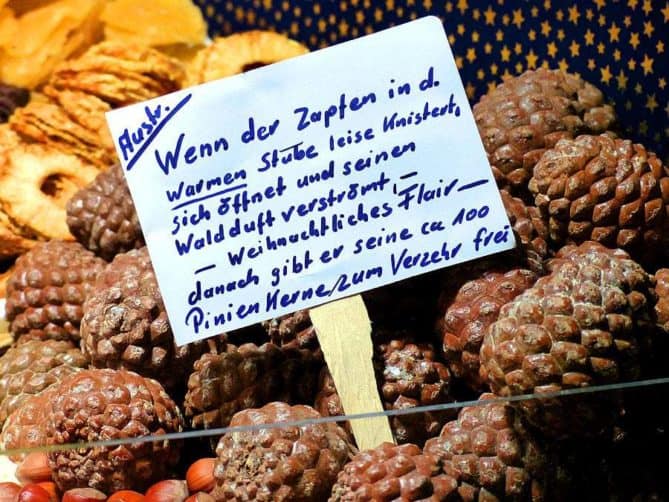 Austr.
Wenn der Zapfen in d.
warmen Stube leise Knistert,
sich öffnet und seinen
Waldduft verströmt, –
– Weihnachtliches Flair –
danach gibt er seine ca 100
Pinien Kerne zum Verzehr frei